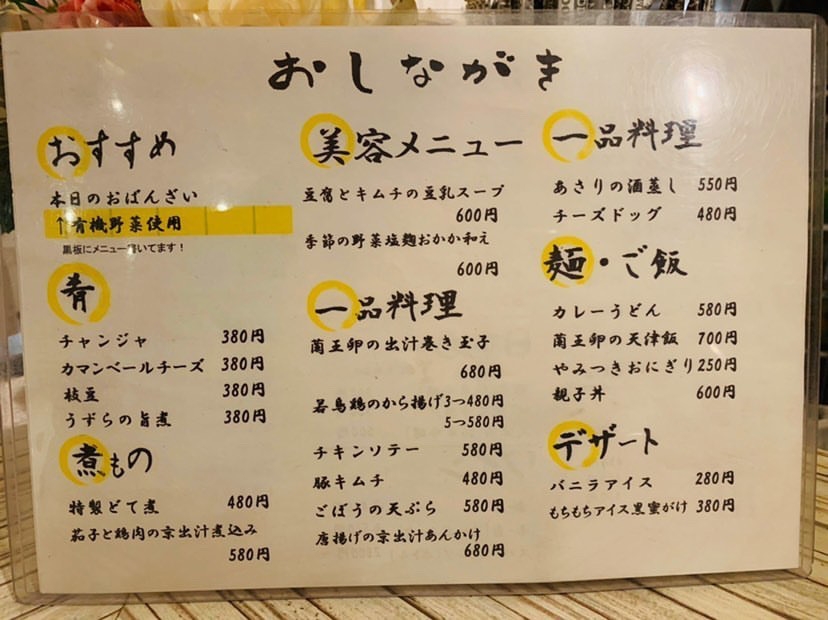 おしながき
おすすめ
本日のおばんざい
↑有機野菜使用
黒板にメニュー書いてます!
肴
チャンジャ 380円
カマンベールチーズ 380円
枝豆 380円
うずらの旨煮 380円
煮もの
特製どて煮 480円
茄子と鶏肉の京出汁煮込み
580円
美容メニュー
豆腐とキムチの豆乳スープ
600円
季節の野菜塩麹おかか和え
600円
一品料理
蘭王卵の出汁巻き玉子
680円
若鳥鶏のから揚げ3つ480円
5つ580円
チキンソテー 580円
豚キムチ 480円
ごぼうの天ぷら 580円
唐揚げの京出汁あんかけ
680円
一品料理
あさりの酒蒸し 550円
チーズドッグ 480円
麺・ご飯
カレーうどん 580円
蘭王卵の天津飯 700円
やみつきおにぎり250円
親子丼 600円
デザート
バニラアイス 280円
もちもちアイス黒蜜がけ 380円